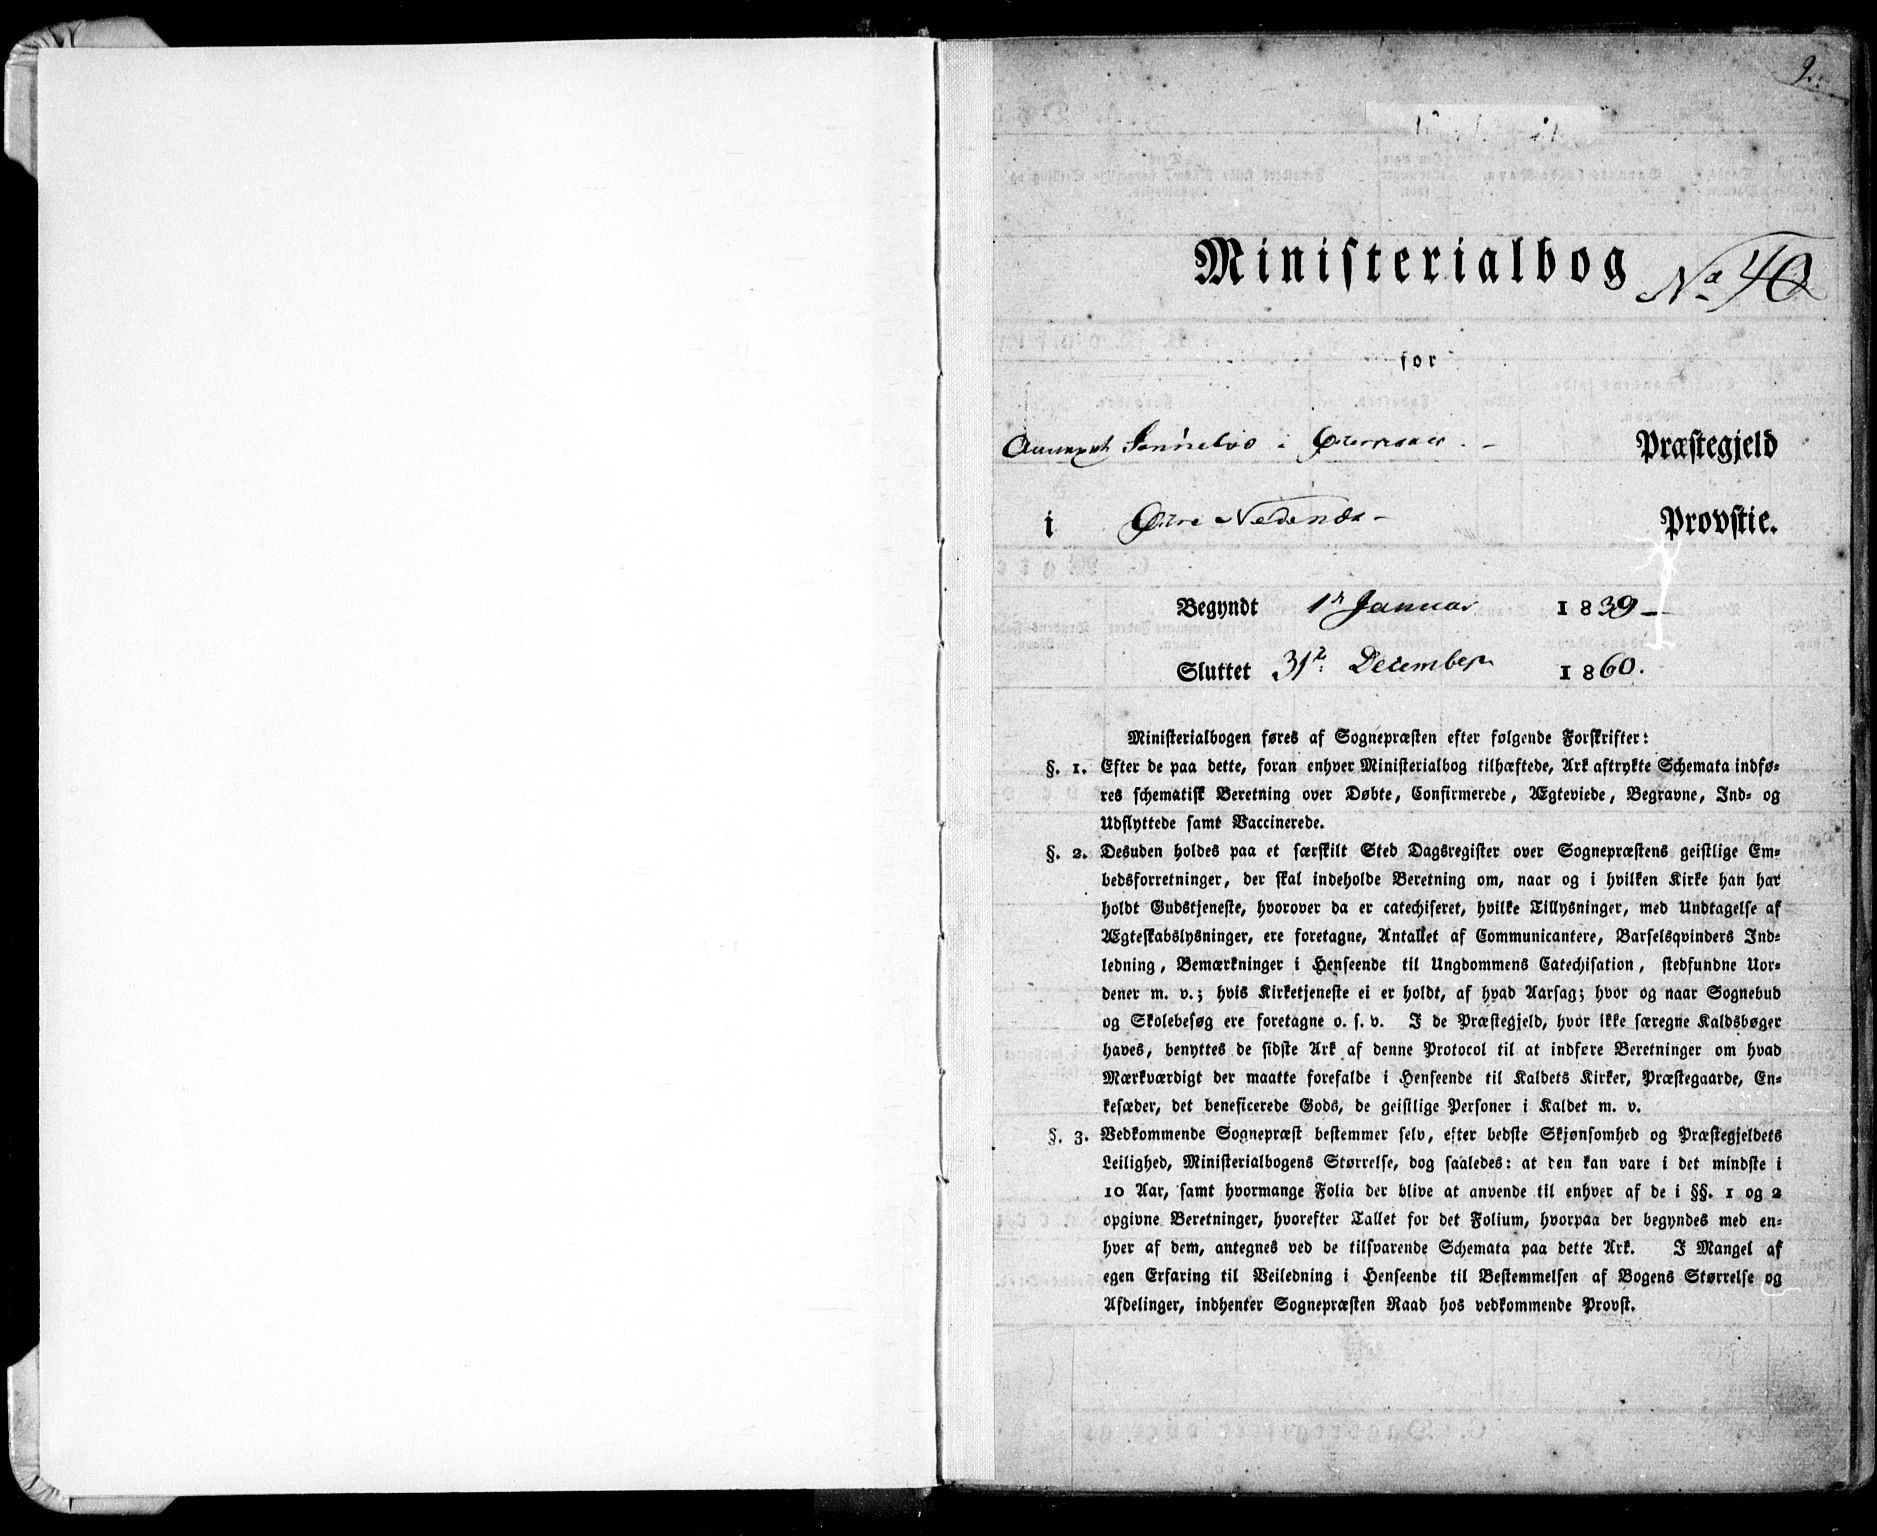 2.
Ministerialbog No 40
for
Annexet i Præstegjeld
i Østre Nedenæs Provstie.
Begyndt 1r Januar 1839
Sluttet 31r December 1860.
Ministerialbogen føres af Sognepræsten efter følgende Forskrifter:
§. 1. Efter de paa dette, foran enhver Ministerialbog tilhæftede, Ark aftrykte Schemata indfø-
res schematisk Beretning over Døbte, Confirmerede, Ægteviede, Begravne, Ind- og
Udflyttede samt Vaccinerede.
§. 2. Desuden holdes paa et særskilt Sted Dagsregister over Sognepræstens geistlige Em-
bedsforretninger, der skal indeholde Beretning om, naar og i hvilken Kirke han har
holdt Gudstjeneste, hvorover da er catechiseret, hvilke Tillysninger, med Undtagelse af
Ægteskabslysninger, ere foretagne, Antallet af Communicantere, Barselsqvinders Ind-
ledning, Bemærkninger i Henseende til Ungdommens Catechisation, stedfundne Uor-
dener m. v.; hvis Kirketjeneste ei er holdt, af hvad Aarsag; hvor og naar Sognebud
og Skolebesøg ere foretagne o. s. v. I de Præstegjeld, hvor ikke særegne Kaldsbøger
haves, benyttes de sidste Ark af denne Protocol til at indføre Beretninger om hvad
Mærkværdigt der maatte forefalde i Henseende til Kaldets Kirker, Præstegaarde, En-
kesæder, det beneficerede Gods, de geistlige Personer i Kaldet m. v.
§. 3. Vedkommende Sognepræst bestemmer selv, efter bedste Skjønsomhed og Præstegjeldets
Leilighed, Ministerialbogens Størrelse, dog saaledes: at den kan vare i det mindste i
10 Aar, samt hvormange Folia der blive at anvende til enhver af de i §§. 1 og 2
opgivne Beretninger, hvorefter Tallet for det Folium, hvorpaa der begyndes med en-
hver af dem, antegnes ved de tilsvarende Schemata paa dette Ark. I Mangel af
egen Erfaring til Veiledning i Henseende til Bestemmelsen af Bogens Størrelse og
Afdelinger, indhenter Sognepræsten Raad hos vedkommende Provst.